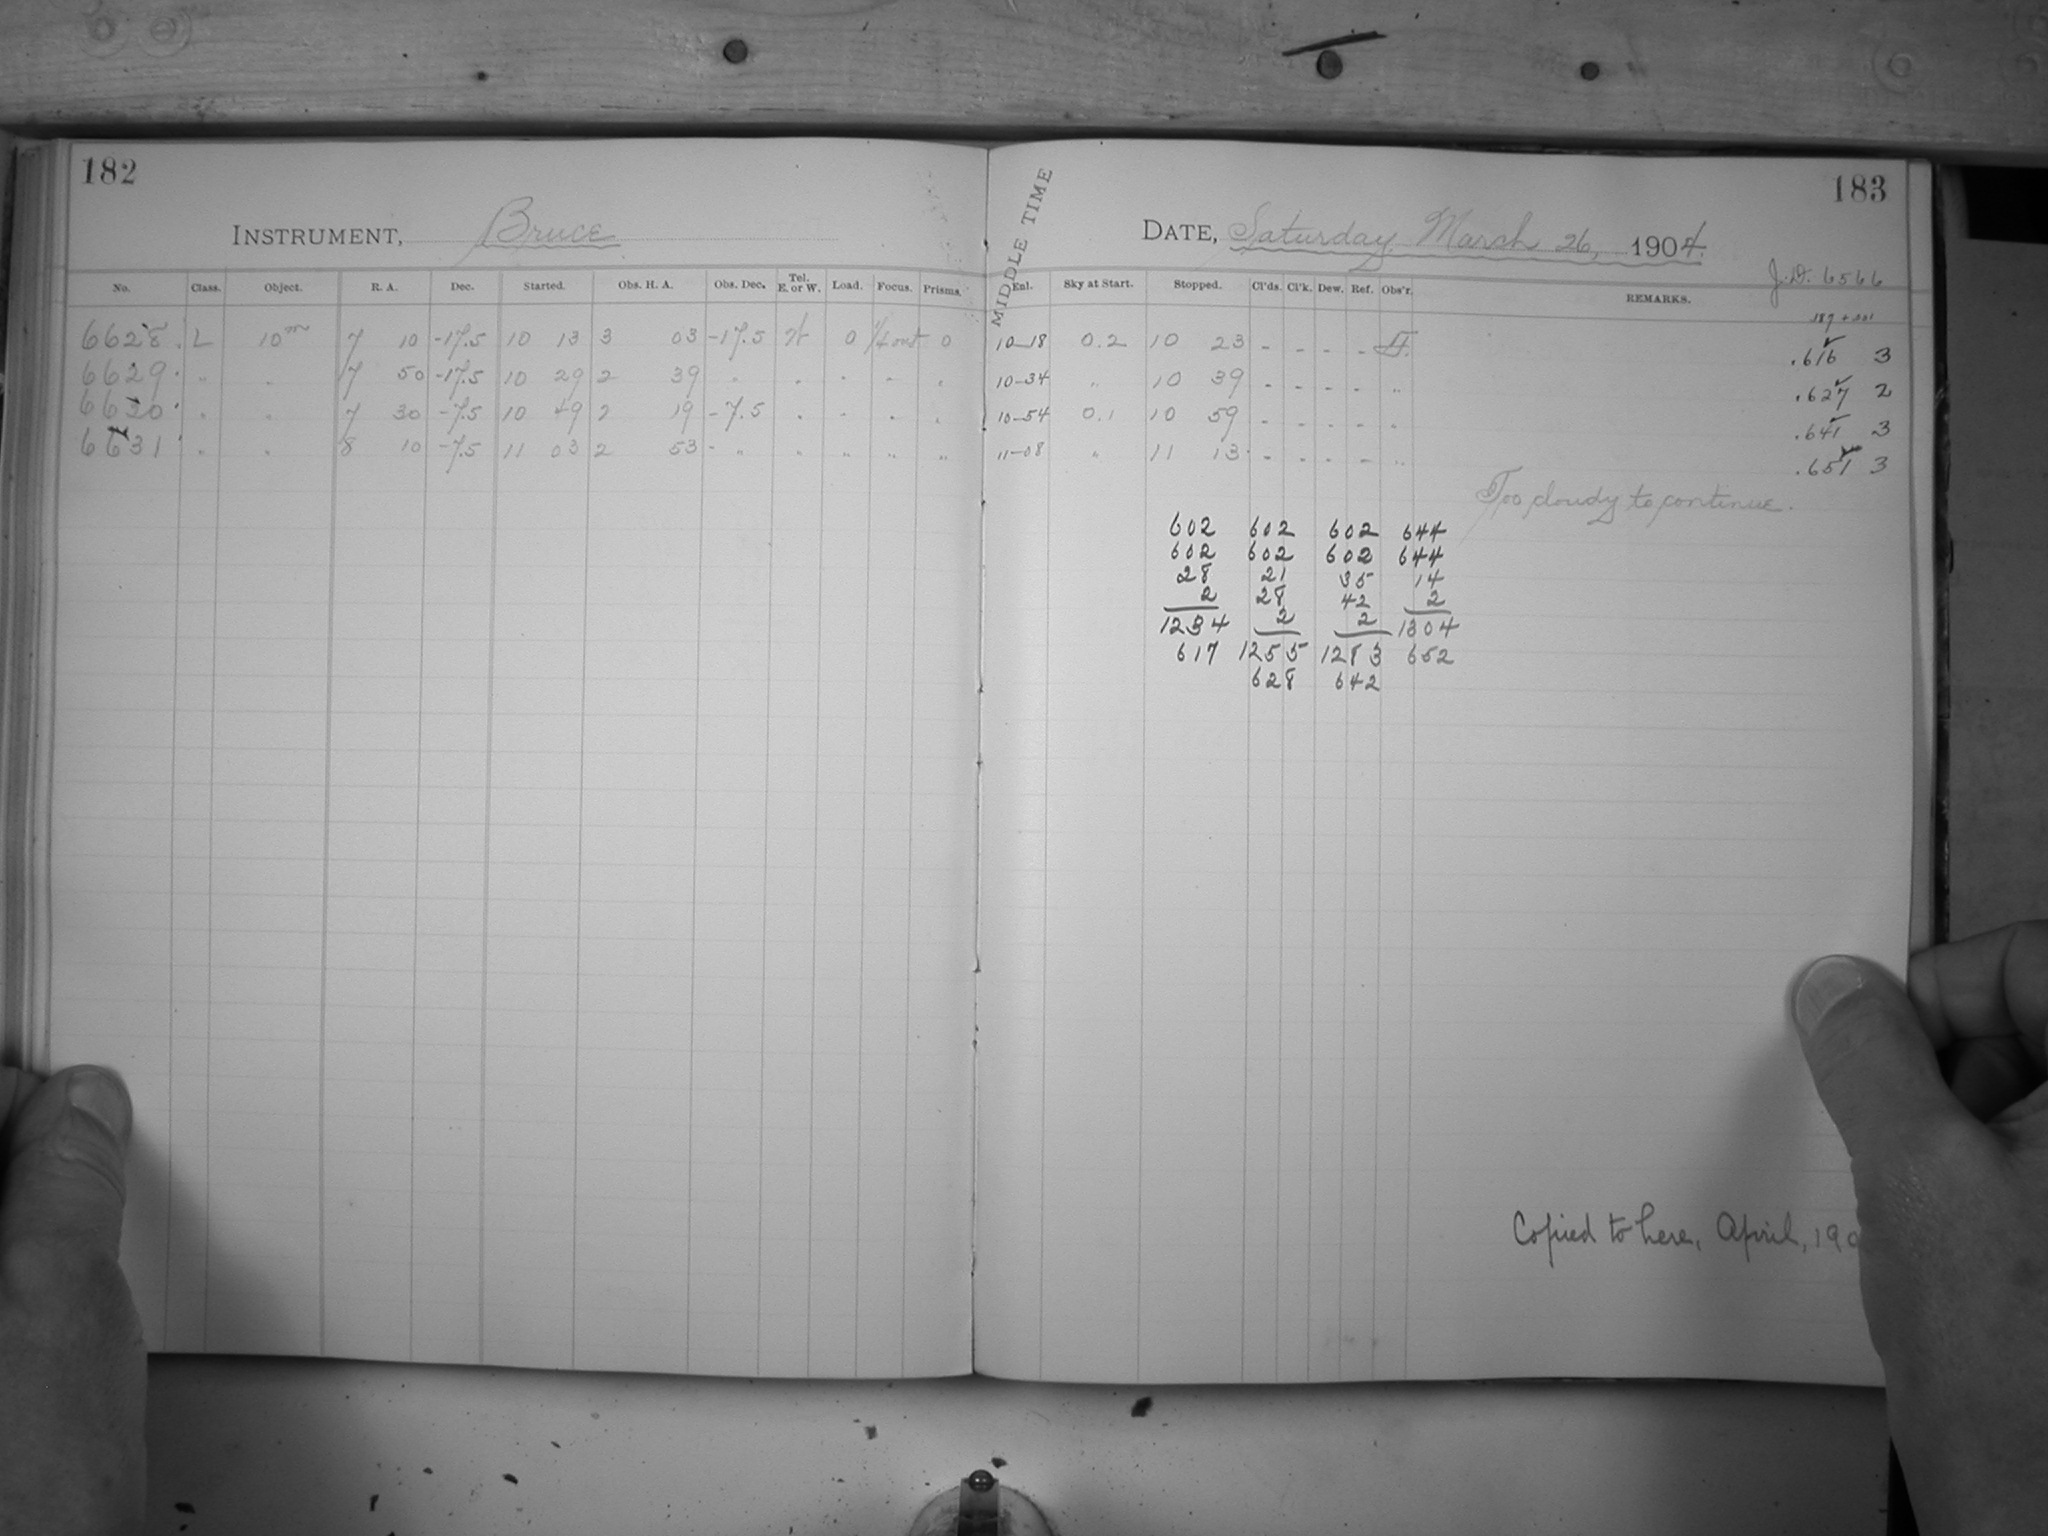 182
INSTRUMENT, Bruce
No. Class. Object. R. A. Dec. Started. Obs. H. A. Obs. Dec. Tel. E. or W. Load. Focus. Prisms.
6628 L 10m 7 10 -17.5 10 13 3 03 -17.5 W 0 1/4 out 0
6629 " " 7 50 -17.5 10 29 2 39 " " " " "
6630 " " 7 30 -7.5 10 49 2 19 -7.5 " " " "
6631 " " 8 10 -7.5 11 03 2 53 - " " " " "
183
MIDDLE TIME
DATE, Saturday March 26, 1904.
J.D. 6566
Enl. Sky at Start. Stopped. Cl'ds. Cl'k. Dew. Ref. Obs'r. REMARKS.
10-18 0.2 10 23 - - - - .616 3
10-34 " 10 39 - - - - " .627 2
10-54 0.1 10 59 - - - - " .641 3
11-08 " 11 13 - - - - " .651 3
Too cloudy to continue.
602 602 602 644
602 602 602 644
28 21 35 14
2 28 42 2
1234 2 2 1304
617 1255 1283 652
628 642
Copied to here, April, 190